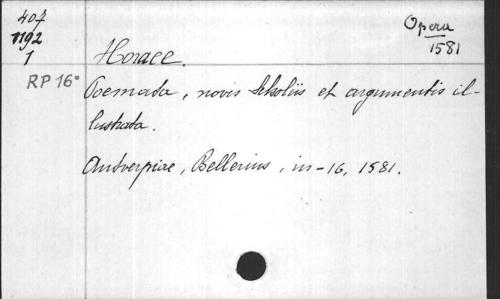 407
1192
1
Opera
1581
Horace.
RP 16°
Poemata, novis scholiis et argumentis il-
lustrata.
Antverpiae, Bellerius, in-16, 1581.